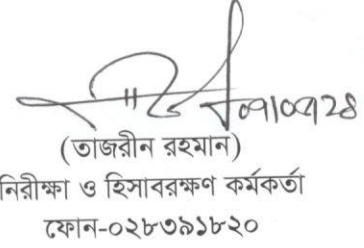 (তাজরীন রহমান)
নিরীক্ষা ও হিসাবরক্ষণ কর্মকর্তা
ফোন-০২৮৩৯১৮২০